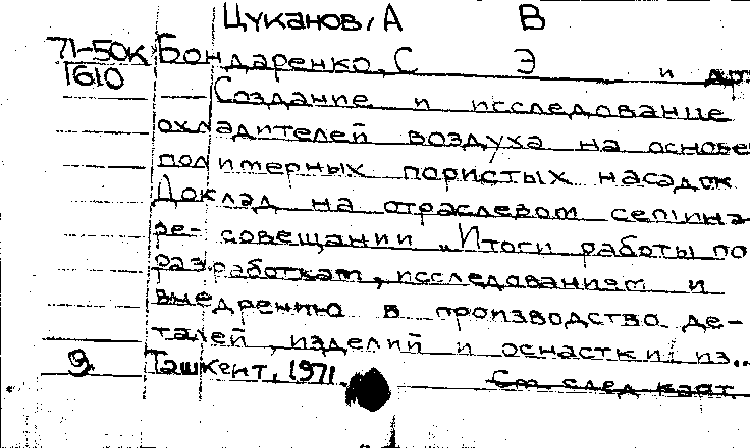 Цуканов, А В
71-50к Бондаренко, С Э и др.
1610
Создание и исследование
охладителей воздуха на основе
полимерных пористых насадок.
Доклад на отраслевом семина-
ре-совещании „Итоги работы по
разработкам, исследованиям и
внедрению в производство де-
талей, изделий и оснастки из..
9. Ташкент, 1971.
См след карт